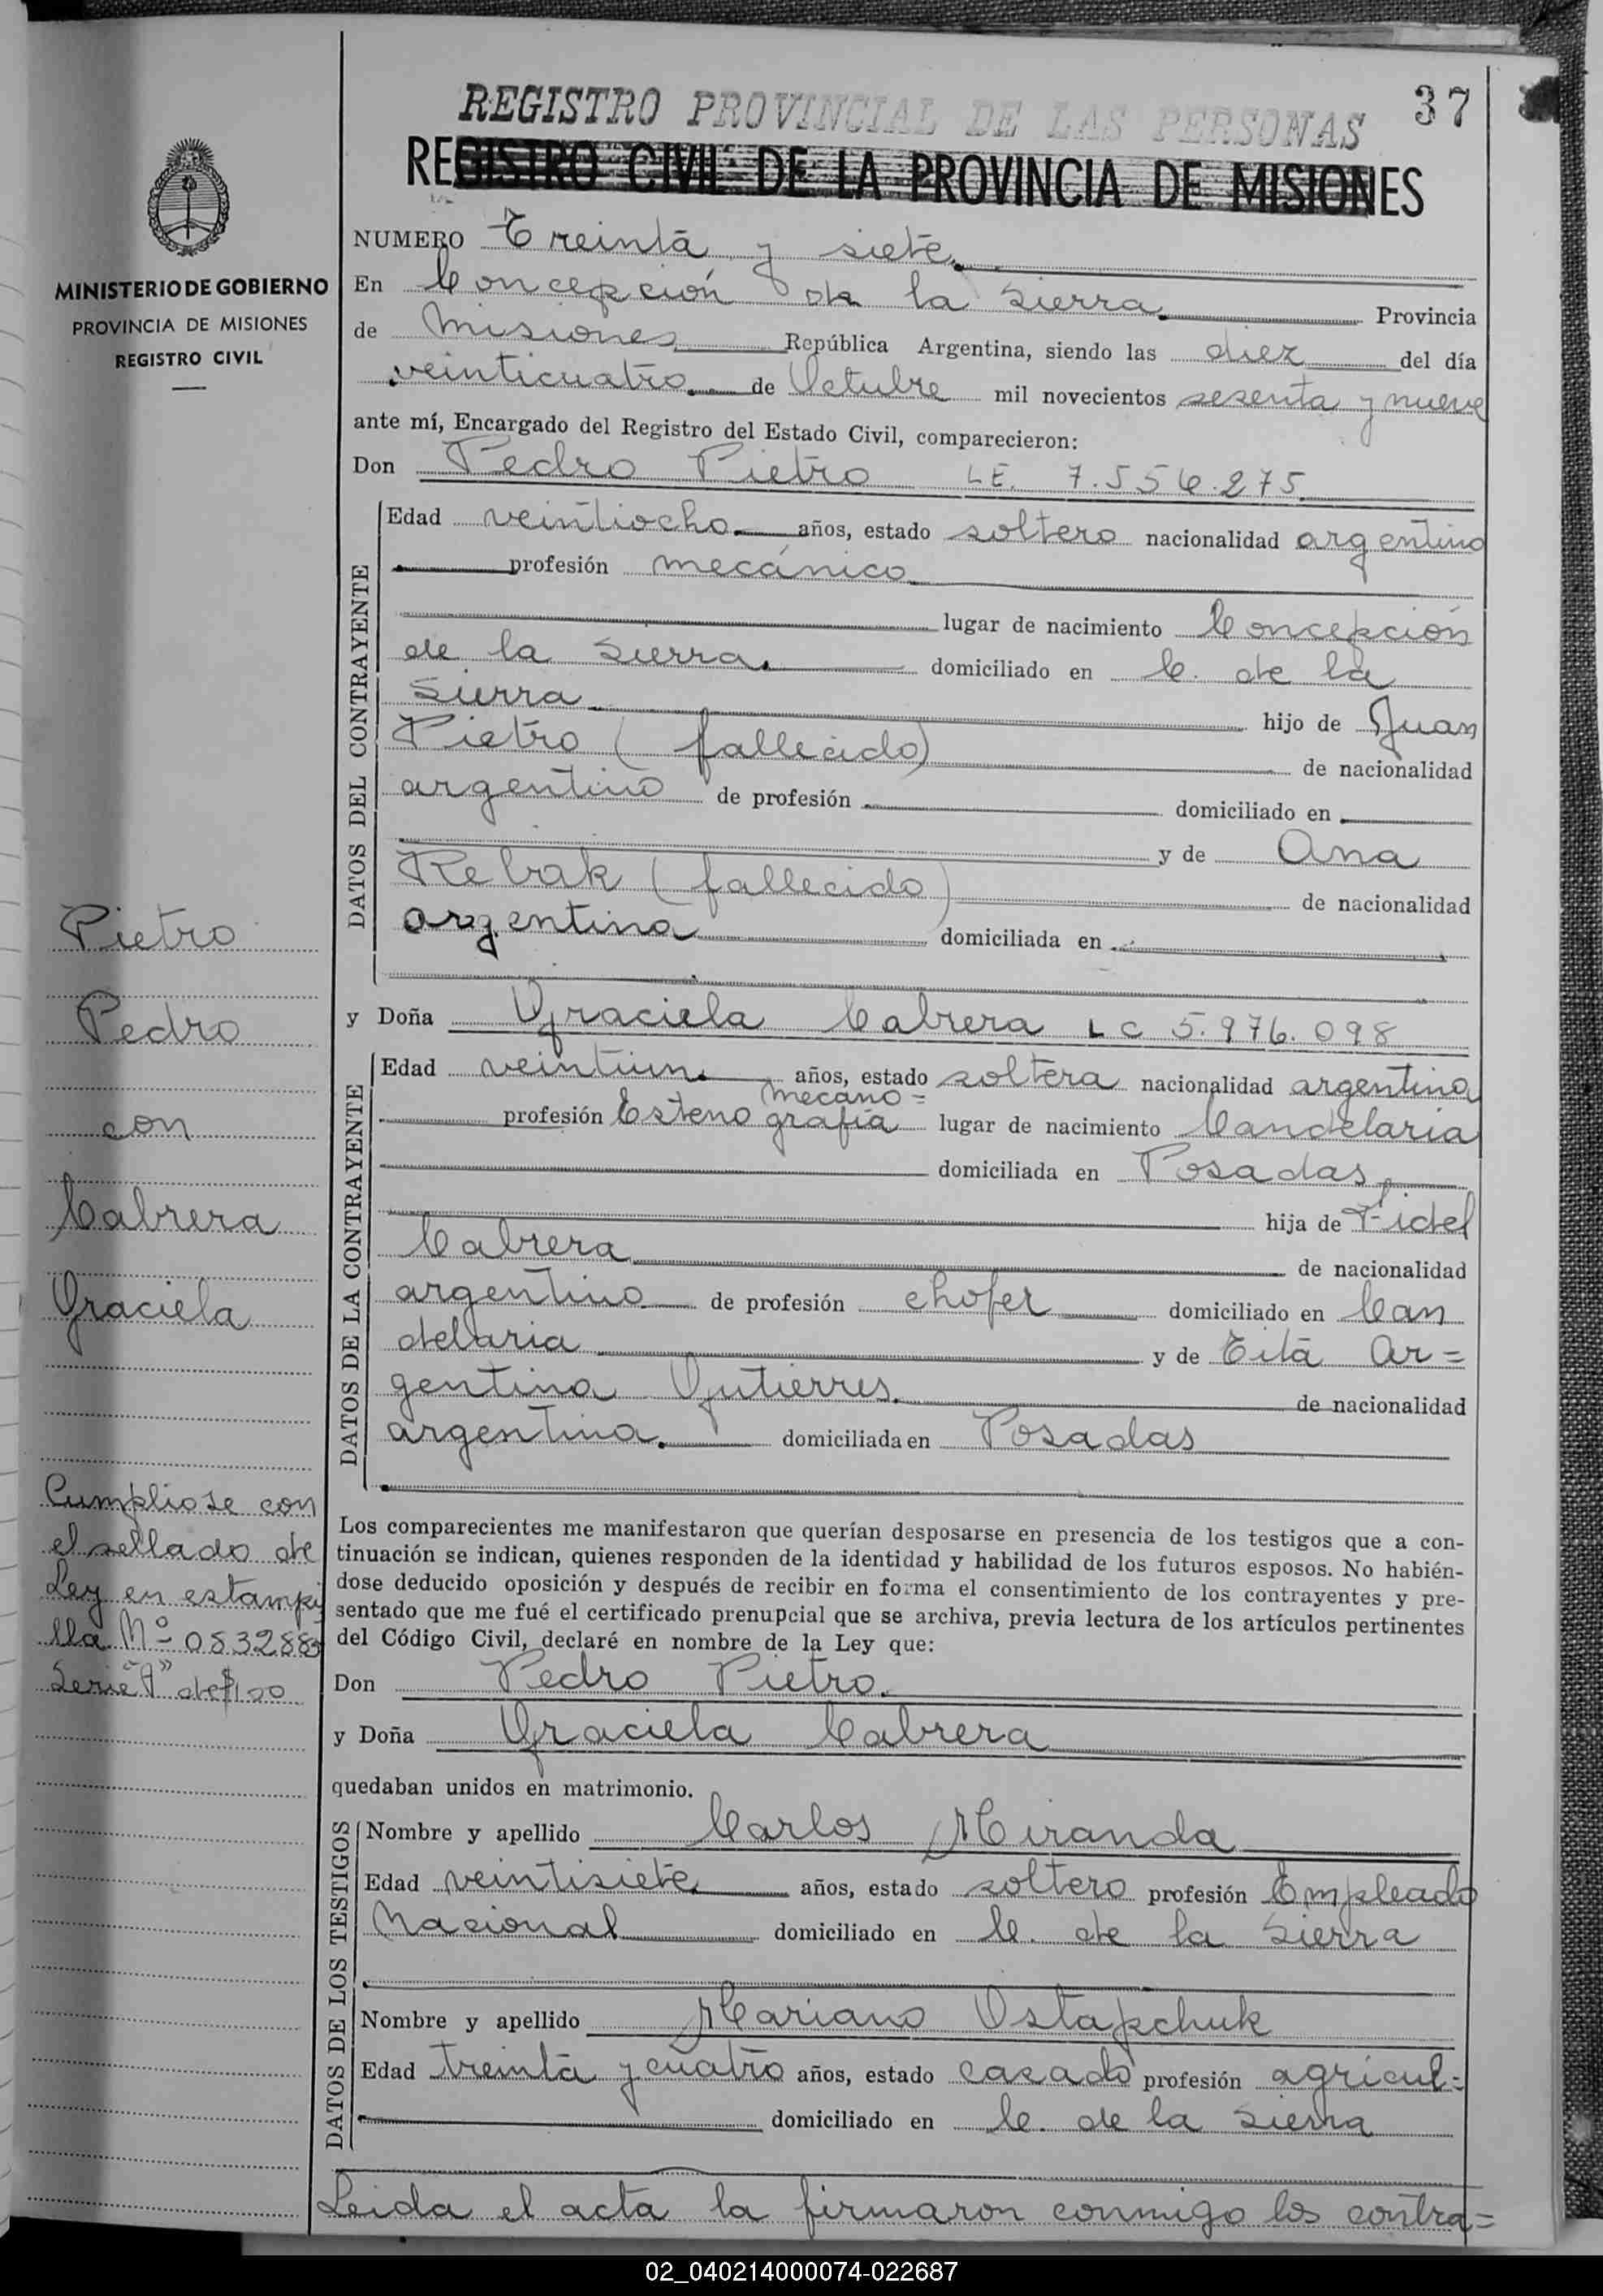 REGISTRO PROVINCIAL DE LAS PERSONAS 37
REGISTRO CIVIL DE LA PROVINCIA DE MISIONES
MINISTERIO DE GOBIERNO
PROVINCIA DE MISIONES
REGISTRO CIVIL
NUMERO Treinta y siete
En Concepción de la Sierra Provincia
de Misiones República Argentina, siendo las diez del día
veinticuatro de Octubre mil novecientos sesenta y nueve
ante mí, Encargado del Registro del Estado Civil, comparecieron:
Don Pedro Pietro LE. 7.556.275
DATOS DEL CONTRAYENTE
Edad veintiocho años, estado soltero nacionalidad argentino
profesión mecánico
lugar de nacimiento Concepción
de la Sierra domiciliado en C. de la
Sierra hijo de Juan
Pietro (fallecido) de nacionalidad
argentino de profesión domiciliado en
y de Ana
Rebak (fallecido) de nacionalidad
argentina domiciliada en
y Doña Graciela Cabrera LC 5.976.098
DATOS DE LA CONTRAYENTE
Edad veintiun años, estado soltera nacionalidad argentina
mecano=
profesión Esteno grafía lugar de nacimiento Candelaria
domiciliada en Posadas
hija de Fidel
Cabrera de nacionalidad
argentino de profesión chofer domiciliado en Can
delaria y de Tita Ar=
gentina Gutierres de nacionalidad
argentina. domiciliada en Posadas
Pietro
Pedro
con
Cabrera
Graciela
Cumpliose con
el sellado de
Ley en estampi
lla Nº 053288
Serie "A" de $100
Los comparecientes me manifestaron que querían desposarse en presencia de los testigos que a con-
tinuación se indican, quienes responden de la identidad y habilidad de los futuros esposos. No habién-
dose deducido oposición y después de recibir en forma el consentimiento de los contrayentes y pre-
sentado que me fué el certificado prenupcial que se archiva, previa lectura de los artículos pertinentes
del Código Civil, declaré en nombre de la Ley que:
Don Pedro Pietro.
y Doña Graciela Cabrera
quedaban unidos en matrimonio.
DATOS DE LOS TESTIGOS
Nombre y apellido Carlos Miranda
Edad veintisiete años, estado soltero profesión Empleado
Nacional domiciliado en C. de la Sierra
Nombre y apellido Mariano Ostapchuk
Edad treinta y cuatro años, estado casado profesión agricul=
domiciliado en C. de la Sierra
Leida el acta la firmaron conmigo los contra=
02_040214000074-022687